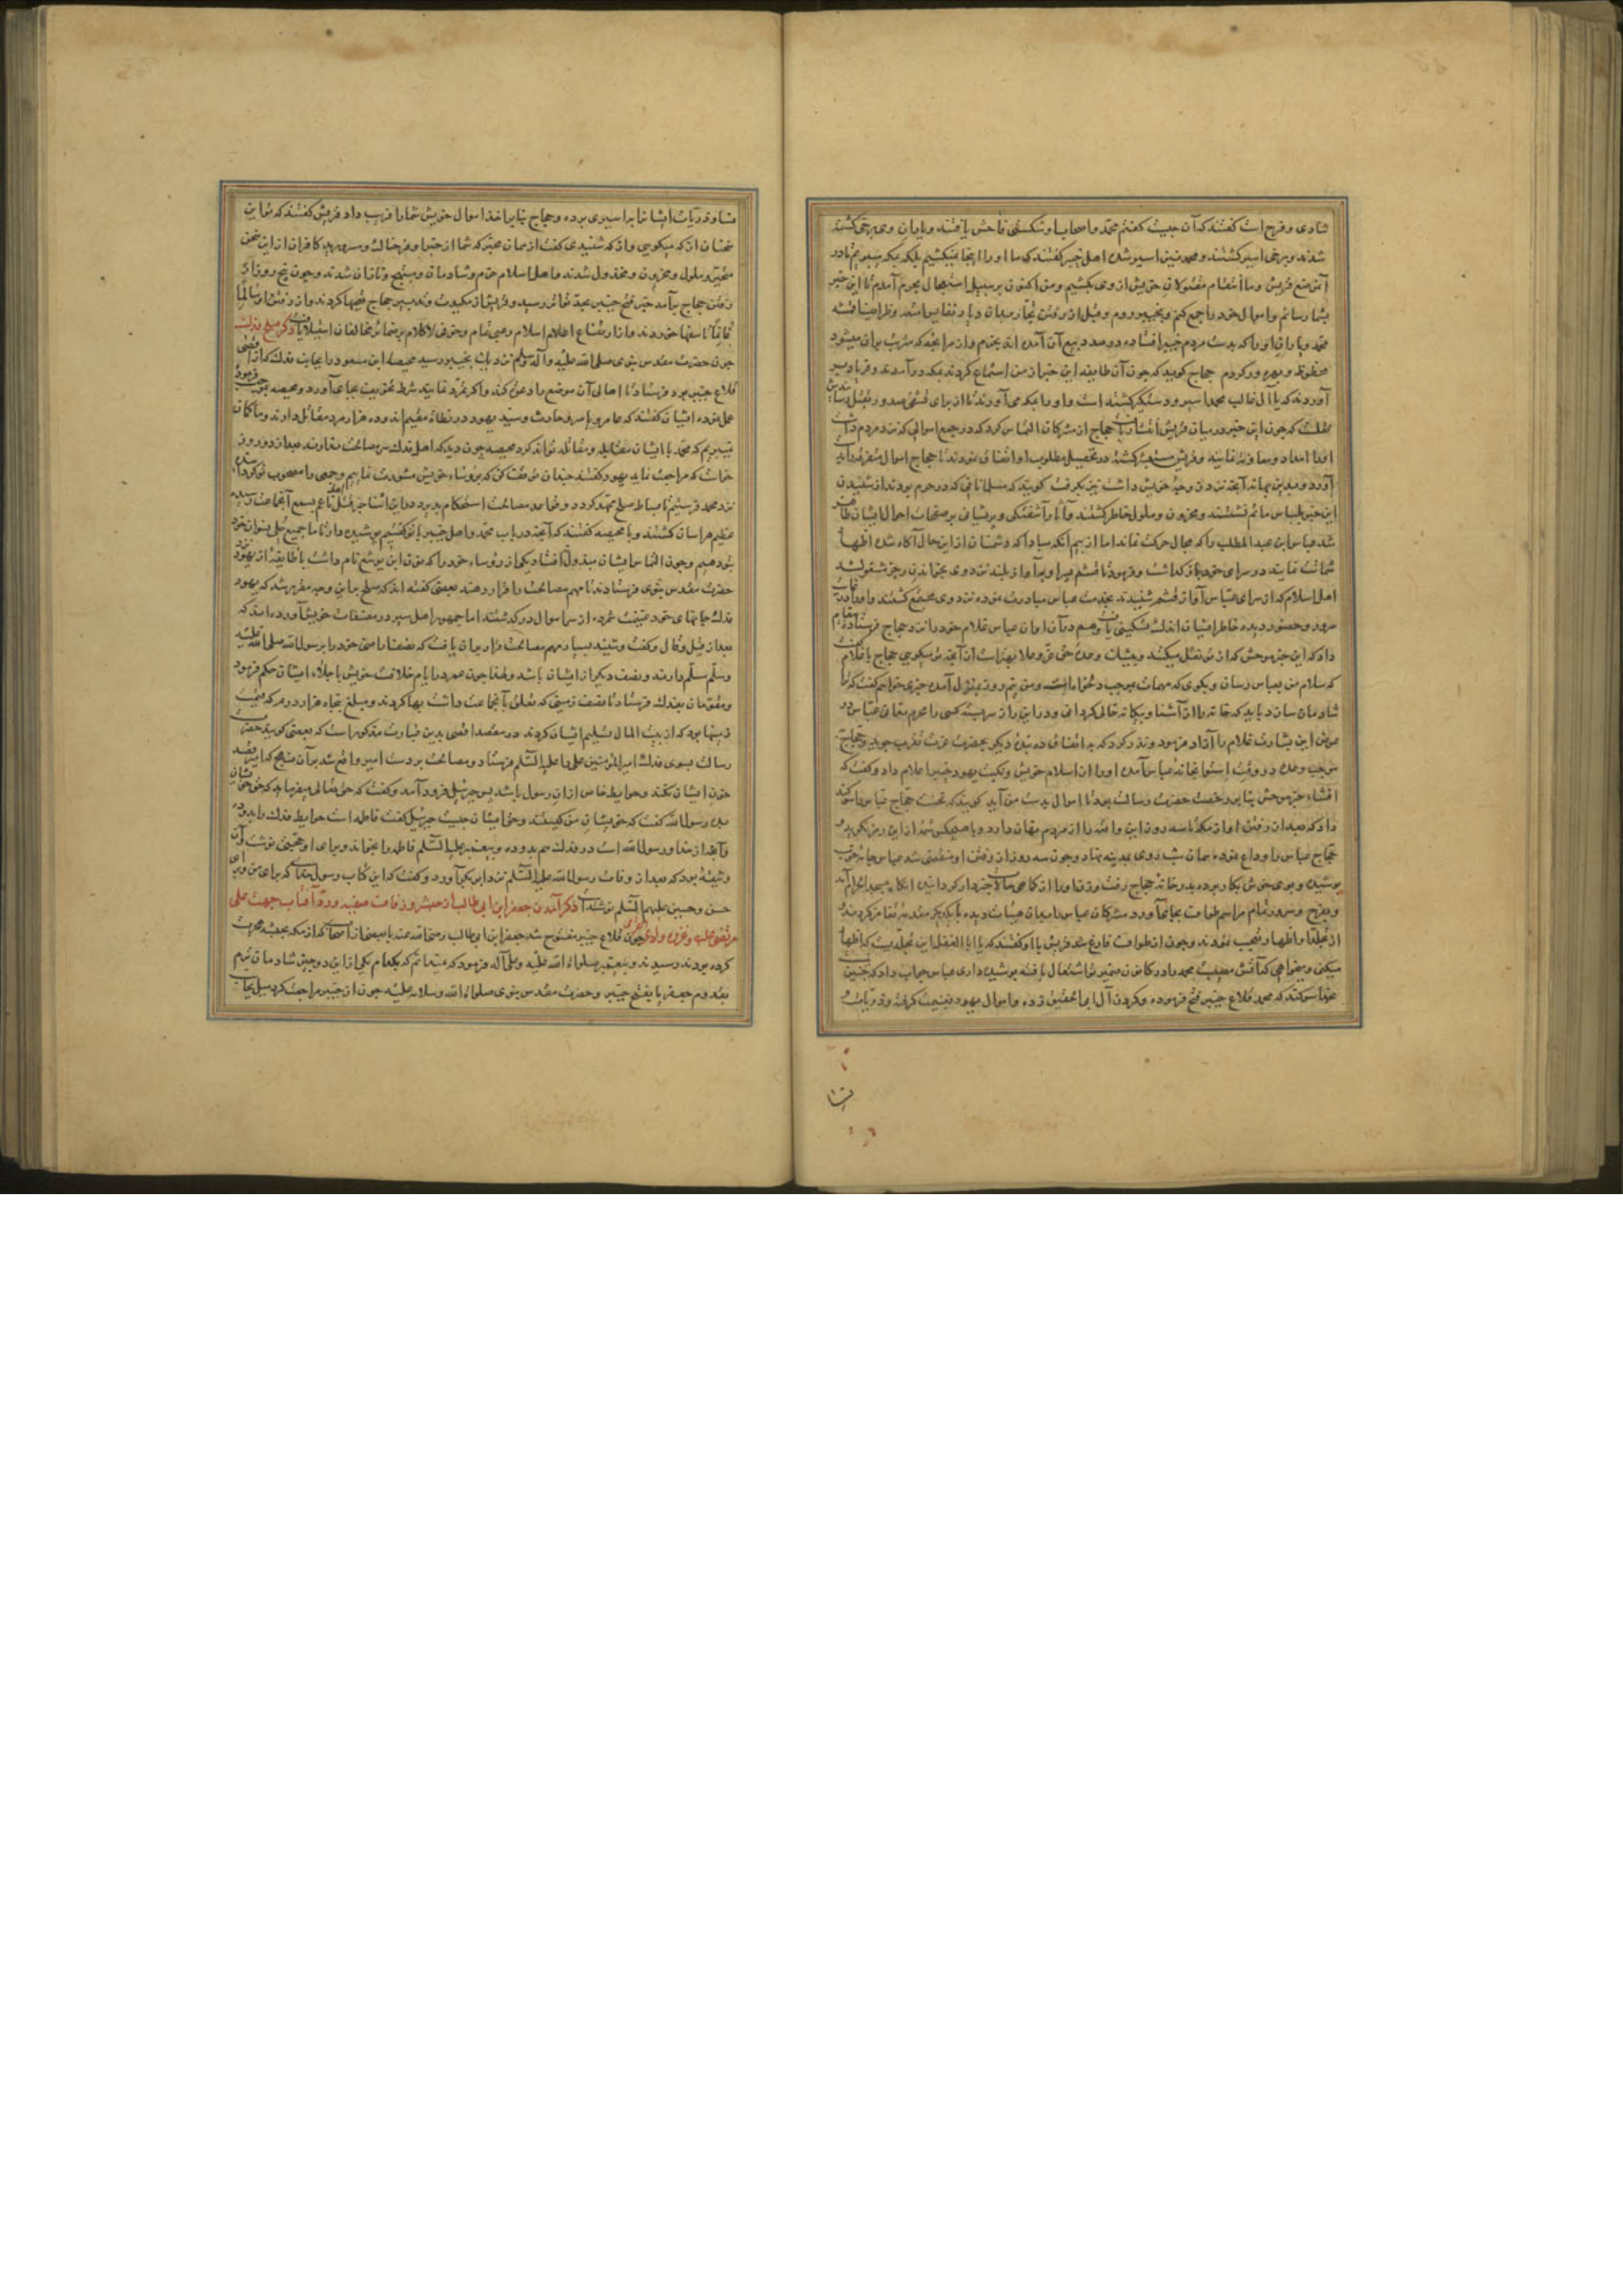 شادی و فرح است گفتند که آن چیست گفتم محمد و اصحاب او شکستی فاحش یافتند و یاران وی برخی کشته
شدند و برخی اسیر گشتند و محمد نیز اسیر شد اهل خیبر گفتند که ما او را اینجا نمیکشیم بلکه بمکه میبریم تا در
قریش از وی بکشیم و من اکنون بر سبیل استعجال بحرم آمدم تا این خبر
بشما رسانم و اموال خود را جمع کنم و بخیبر روم و قبل از رفتن تجار
محمد و یاران او را که بدست مردم خیبر افتاده
محظوظ و بهره‌ور گردم حجاج گوید که چون آن طایفه این خبر از من استماع کردند بمکه درآمدند و فریاد بر
آوردند که یا آل غالب محمد اسیر و دستگیر گشته است و او را بمکه می آورند تا از برای
که چون این خبر در میان قریش حجاج از مشرکان التماس کرد که در جمع اموالی که نزد مردم داشت
او را امداد و معاونه نمایند و قریش در تحصیل مطلوب او نمودند تا حجاج اموال متفرقه
آورد و بدین بهانه آنچه نزد زوجهٔ خویش داشت نیز بگرفت گویند که مسلمانانی که در حرم بودند از شنیدن
این خبر بلباس ماتم نشستند و محزون و ملول خاطر گشتند و آثار آشفتگی و پریشانی بر صفحات احوال ایشان ظاهر
شد عباس ابن عبد المطلب را که مجال حرکت نماند اما از بیم آنکه مبادا که دشمنان از این حال آگاه شده اظهار
شماتت نمایند در سرای خود باز گذاشت و فرمود تا قثم پسر او بآواز بلند نزد وی بخواندن رجز مشغول شد
اهل اسلام که از سرای عباس آواز قثم شنیدند بخدمت عباس مبادرت نموده نزد وی مجتمع گشتند و او را در
سرور و حضور دیده خاطر ایشان اندک تسکینی یافت و هم در آن اوان عباس غلام خود را نزد حجاج فرستاده پیغام
داد که این چه خبر موحش که از تو نقل میکنند و بیشک وعدهٔ حق عز و علا بهتر است از آنچه تو میگویی حجاج با غلام گفت
که سلام من بعباس رسان و بگوی که مهمات بر حسب دلخواه است و من نیم روز بمنزل آمده چیزی خواهم گفت که تا
شادمان سازد باید که خانه را از آشنا و بیگانه خالی گردانی و در این راز سربسته کسی را محرم نسازی عباس در
عوض این بشارت غلام را آزاد فرمود و نذر کرد که ده بندهٔ دیگر و حجاج
موجب وعده در وقت استوا بخانهٔ عباس آمده او را از اسلام خویش و نکبت یهود خیبر اعلام داد و گفت که
افشاء خبر موحش بنابر رخصت حضرت رسالت بود تا اموال بدست من آید گویند که نخست حجاج عباس را سوگند
داد که بعد از رفتن او از مکه تا سه روز این واقعه را از مردم پنهان دارد و با هیچکس از این رمز نگوید
حجاج عباس را وداع نموده همان شب روی بمدینه نهاد و چون سه روز از رفتن او منقضی شد عباس جامهٔ خوب
پوشیده و بوی خوش بکار برده بدر خانهٔ حجاج رفت و زن او را از کماهی حالات خبردار گردانید آنگاه بمسجد الحرام آمد
و بفرح و سرور تمام مراسم طواف بجای آورد مشرکان عباس را بدان هیأت دیده با یکدیگر غمز کردند و
از تجلد و اظهار تعجب نمودند و چون از طواف فارغ شد قریش با او گفتند که یا ابا الفضل این تجلدیست که اظهار
میکنی و میخواهی که آتش مصیبت محمد را در کانون ضمیر تو اشتعال یافته پوشیده داری عباس جواب داد که نه چنین
بخدا سوگند که محمد قلاع خیبر فتح فرموده و گردن آل ابی الحقیق زده و اموال یهود غنیمت گرفته و ذریات
نسا و ذریات ایشان را به اسیری برده و حجاج بنابر اخذ اموال خویش شما را فریب داد قریش گفتند که تو این
سخنان از که میگویی و از که شنیدی گفت از همان مخبر که شما از خبر او فرحناک و مسرورید کافران از این سخن
متحیر و ملول و محزون و مخذول شدند و اهل اسلام خرم و شادمان و مبتهج و نازان شدند و چون پنج روز از
رفتن حجاج برآمد خبر فتح خیبر بحد تواتر رسید و قریش از مکیدت و تدبیر حجاج غصه‌ها کردند و از رفتن او سالما
غانما تاسفها خوردند و از ارتفاع اعلام اسلام رعبی تمام و خوفی لاکلام بر ضمائر مخالفان استیلا یافت ذکر صلح فدک
چون حضرت مقدس نبوی صلی الله علیه و آله وسلم نزدیک بخیبر رسید محیصه ابن مسعود را بجانب فدک که از اقصی
قلاع خیبر بود فرستاد تا اهالی آن موضع را دعوت کند و اگر تمرد نمایند شرط تخویف بجای آورد و محیصه بموجب فرموده
عمل نموده ایشان گفتند که عامر و یاسر و حارث و سید یهود در نطاة مقیم‌اند و ده هزار مرد مقاتل دارند و ما گمان
نمیبریم که محمد با ایشان مقابله و مقاتله تواند کرد محیصه چون دید که اهل فدک سر مصالحت ندارند بعد از دو روز
خواست که مراجعت نماید یهود گفتند چندان توقف کن که با رؤساء خویش مشورت نماییم و جمعی را مصحوب تو گردانیده
نزد محمد فرستیم تا بساط صلح ممهد گردد و قواعد مصالحت استحکام پذیرد در این اثنا خبر قتل اهل ناعم بسمع آنجماعت رسید
عظیم هراسان گشتند و با محیصه گفتند که آنچه در باب محمد و اهل خیبر با تو گفتیم پوشیده دار تا ما جمیع حلی نسوان خود
بتو دهیم و چون التماس ایشان مبذول نیفتاد یکی از رؤساء خود را که نون ابن یوشع نام داشت با طایفه از یهود نزد
حضرت مقدس نبوی فرستادند تا مهم مصالحت را قرار دهند بعضی گفته اند که صلح بر این وجه مقرر شد که یهود
فدک جانهای خود غنیمت شمرده از سر اموال درگذشتند اما جمهور اهل سیر در مصنفات خویش آورده‌اند که
بعد از قیل و قال و گفت و شنید بسیار مهم مصالحت قرار بر آن یافت که نصف اراضی خود را برسول الله صلی الله علیه
وسلم مسلم دارند و نصف دیگر از ایشان باشد و لهذا چون عمر در ایام خلافت خویش باجلاء ایشان حکم فرمود
و مقومان بفدک فرستاد تا نصف زمینی که تعلق بآنجماعت داشت بها کردند و مبلغ پنجاه هزار درم که قیمت
زمینها بود که از بیت المال تسلیم ایشان کردند در مقصد اقصی بدین عبارت مذکور است که بعضی گویند حضرت
رسالت بسوی فدک امیر المؤمنین علی را علیه السلم فرستاد و مصالحت بر دست امیر واقع شد بر آن منهج که امیر قصد
خون ایشان نکند و حوایط خاص از آن رسول باشد پس جبرئیل فرود آمد و گفت که حق تعالی میفرماید که حق خویشان
بده رسول الله گفت که خویشان من کیستند و حق ایشان چیست جبرئیل گفت فاطمه است حوایط فدک را بدو ده
و آنچه از خدا و رسول الله است در فدک هم بدو ده و پیغمبر علیه السلم فاطمه را بخواند و برای او حجتی نوشت و آن
وثیقهٔ بود که بعد از وفات رسول الله علیه السلم نزد ابی بکر آورد و گفت که این کتاب رسول خداست که برای من و برای
حسن و حسین علیهم السلم نوشته است ذکر آمدن جعفر ابن ابی طالب از حبشه و زفاف صفیه و رد آفتاب جهت علی
مرتضی علیه و غزوه وادی القری چون قلاع خیبر مفتوح شد جعفر ابن ابی طالب رضی الله عنه با بعضی از اصحاب که از مکه بحبشه هجرت
کرده بودند رسیدند و پیغمبر صلوات الله علیه و علی آله فرمود که نمیدانم که بکدام یکی از این دو چیز شادمان ترم
بقدوم جعفر یا بفتح خیبر و حضرت مقدس نبوی صلوات الله وسلامه علیه چون از خیبر مراجعت کرد میل بجانب